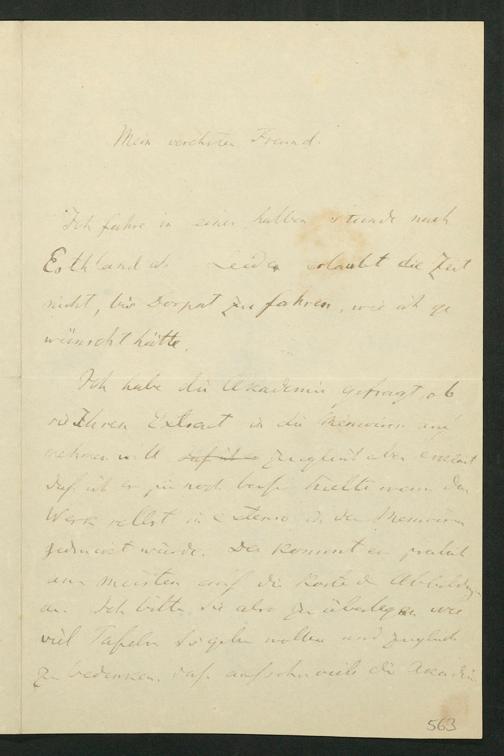 Mein verehrter Freund.
Ich fahre in einer halben Stunde nach
Esthland ab. Leider erlaubt die Zeit
nicht, bis Dorpat zu fahren, wie ich ge
wünscht hätte.
Ich habe die Akademie gefragt, ob
sie Ihren Extract in die Memoiren auf
nehmen will zugleich aber
daß ich es noch hielte wenn das
Werk selbst in extenso in den Memoiren
gedruckt würde. Da kommt es
am meisten auf die Kosten d. Abbildungen
an. Ich bitte Sie also zu überlegen wie
viel Tafeln Sie geben wollen und zugleich
zu bedenken, daß die Akademie
563